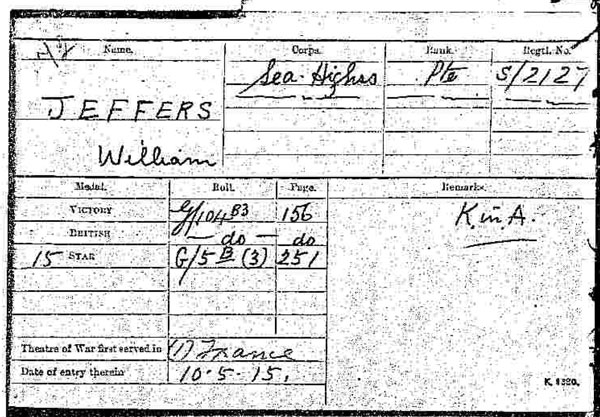 Name. Corps. Rank. Regtl. No.
JEFFERS Sea. Highrs Pte S/2127
William
Medal. Roll. Page. Remarks.
VICTORY G/104 B3 156 K. in A.
BRITISH — do — do
15 STAR G/5 B (3) 251
Theatre of War first served in (1) France
Date of entry therein 10.5.15.
K. 1380.